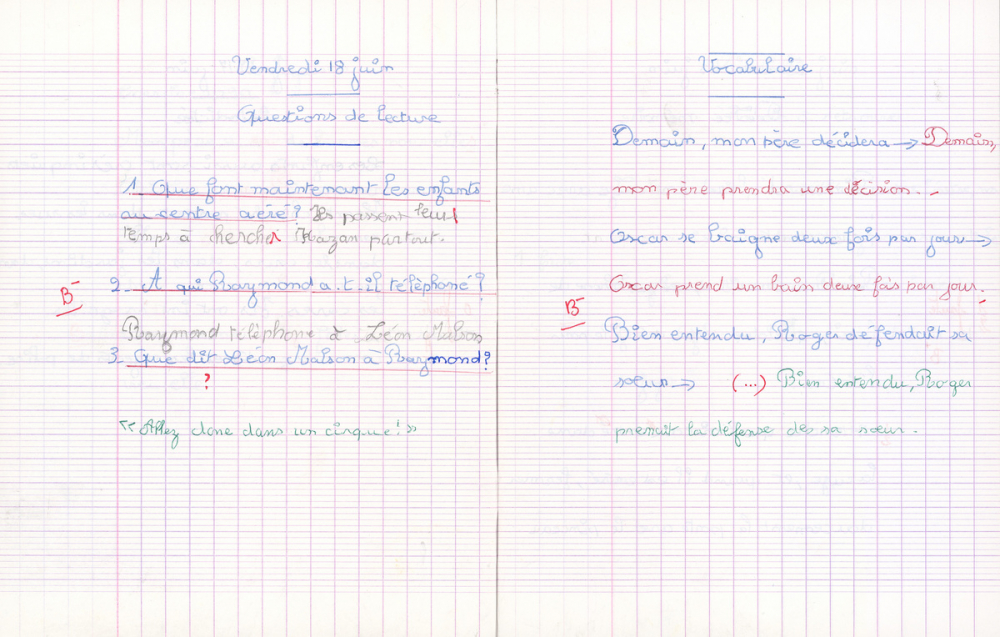 Vendredi 18 juin
Questions de lecture
1. Que font maintenant les enfants
au centre aéré ? Ils passent leur
temps à chercher Kazan partout.
2. A qui Raymond a.t.il téléphoné ?
B-
Raymond télèphone à Léon Malson
3. Que dit Léon Malson à Raymond?
?
"Allez donc dans un cirque!"
Vocabulaire
Demain, mon père décidera → Demain,
mon père prendra une décision.
Oscar se baigne deux fois par jour →
Oscar prend un bain deux fois par jour.
B-
Bien entendu, Roger défendait sa
sœur → (...) Bien entendu, Roger
prenait la défense des sa sœur.